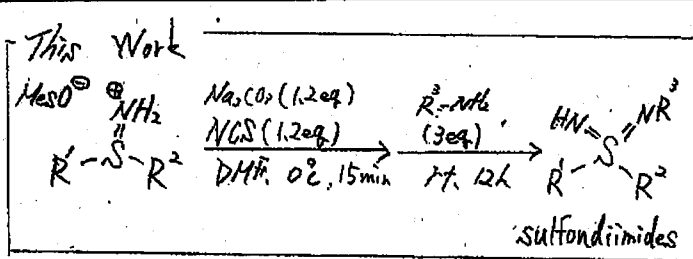 This Work
MesO⊖ ⊕NH₂
R¹-S-R²
Na₂CO₃ (1.2eq)
NCS (1.2eq)
DMF, 0℃, 15min
R³-NH₂
(3eq)
rt, 12h
HN NR³
S
R¹ R²
sulfondiimides